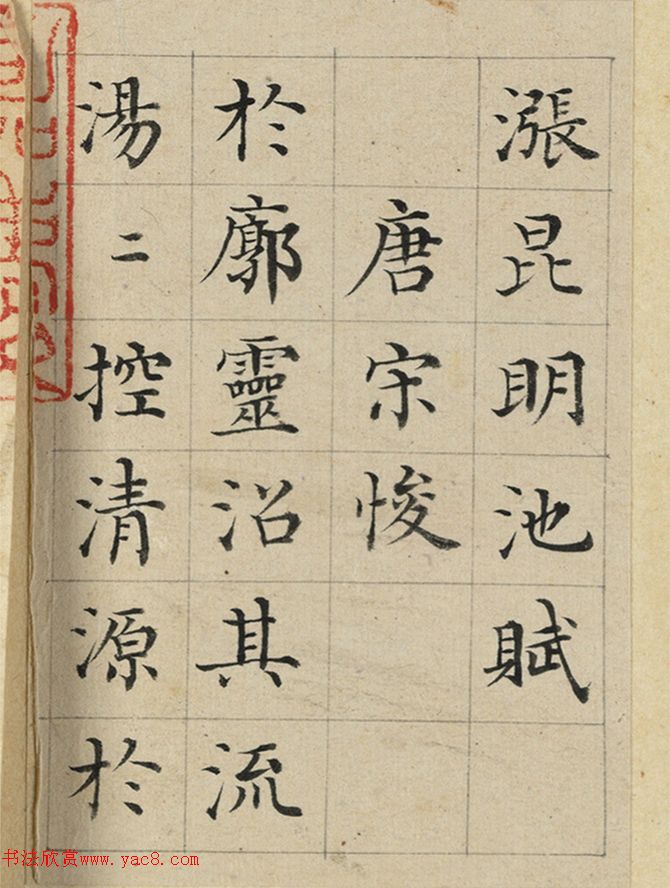 漲昆明池賦
唐宋悛
於廓靈沼其流
湯二控清源於
书法欣赏www.yac8.com